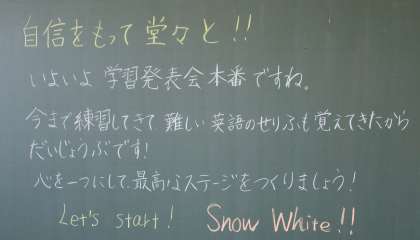 自信をもって堂々と!!
いよいよ学習発表会本番ですね。
今まで練習してきて難しい英語のせりふも覚えてきたから
だいじょうぶです!
心を一つにして、最高なステージをつくりましょう!
Let's start! Snow White!!